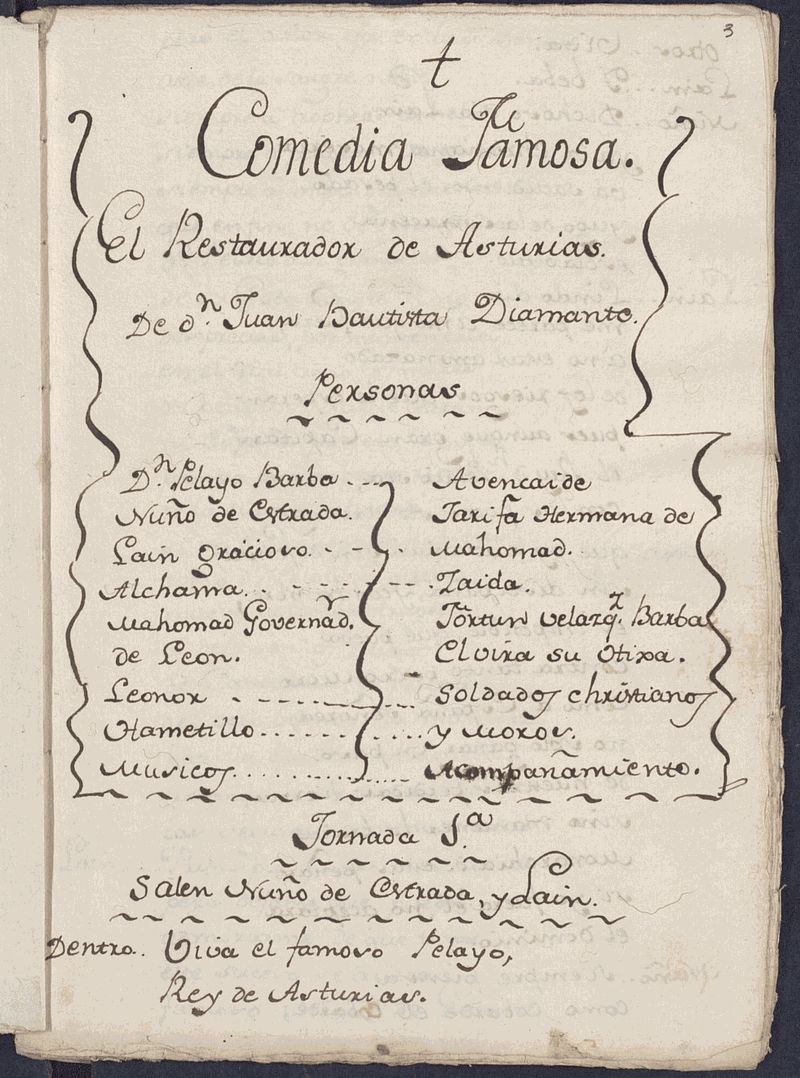 3
†
Comedia Famosa.
El Restaurador de Asturias.
De dn. Juan Bautista Diamante.
Personas
Dn. Pelayo Barba ...
Nuño de Estrada.
Lain gracioso. - - .
Alchama. . - - - - -
Mahomad Governadr.
de Leon.
Leonor - - - - - - -
Hametillo . . . . . . . .
Musicos. . . . . . . . .
Avencaide
Tarifa Hermana de
Mahomad.
Zaida.
Fortun velazqz. Barba
Elvira su Hixa.
Soldados christianos
y Moros.
Acompañamiento.
Jornada 1.a
Salen Nuño de Estrada, y Lain.
Dentro. Viva el famoso Pelayo,
Rey de Asturias.